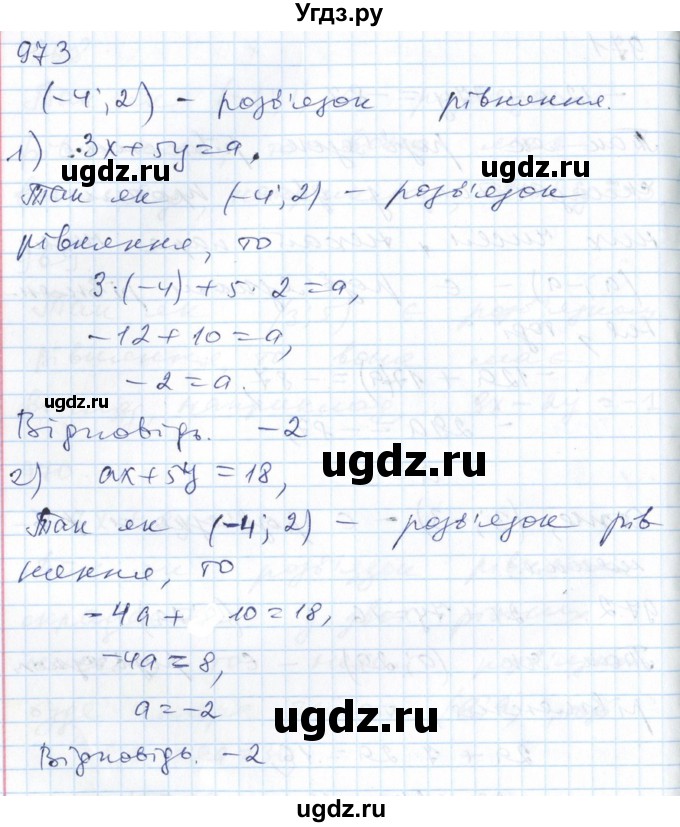 Угdz.ру
973
(-4; 2) - розв'язок рівняння.
1) 3x + 5y = a.
ugdz.ru ugdz.ru
Так як (-4; 2) - розв'язок
рівняння, то
3·(-4) + 5·2 = a,
-12 + 10 = a,
-2 = a.
ugdz.ru
Відповідь. -2
ugdz.ru
2) ax + 5y = 18,
Так як (-4; 2) - розв'язок рів
няння, то
-4a + 10 = 18,
-4a = 8,
a = -2
ugdz.ru
Відповідь. -2
ugdz.ru